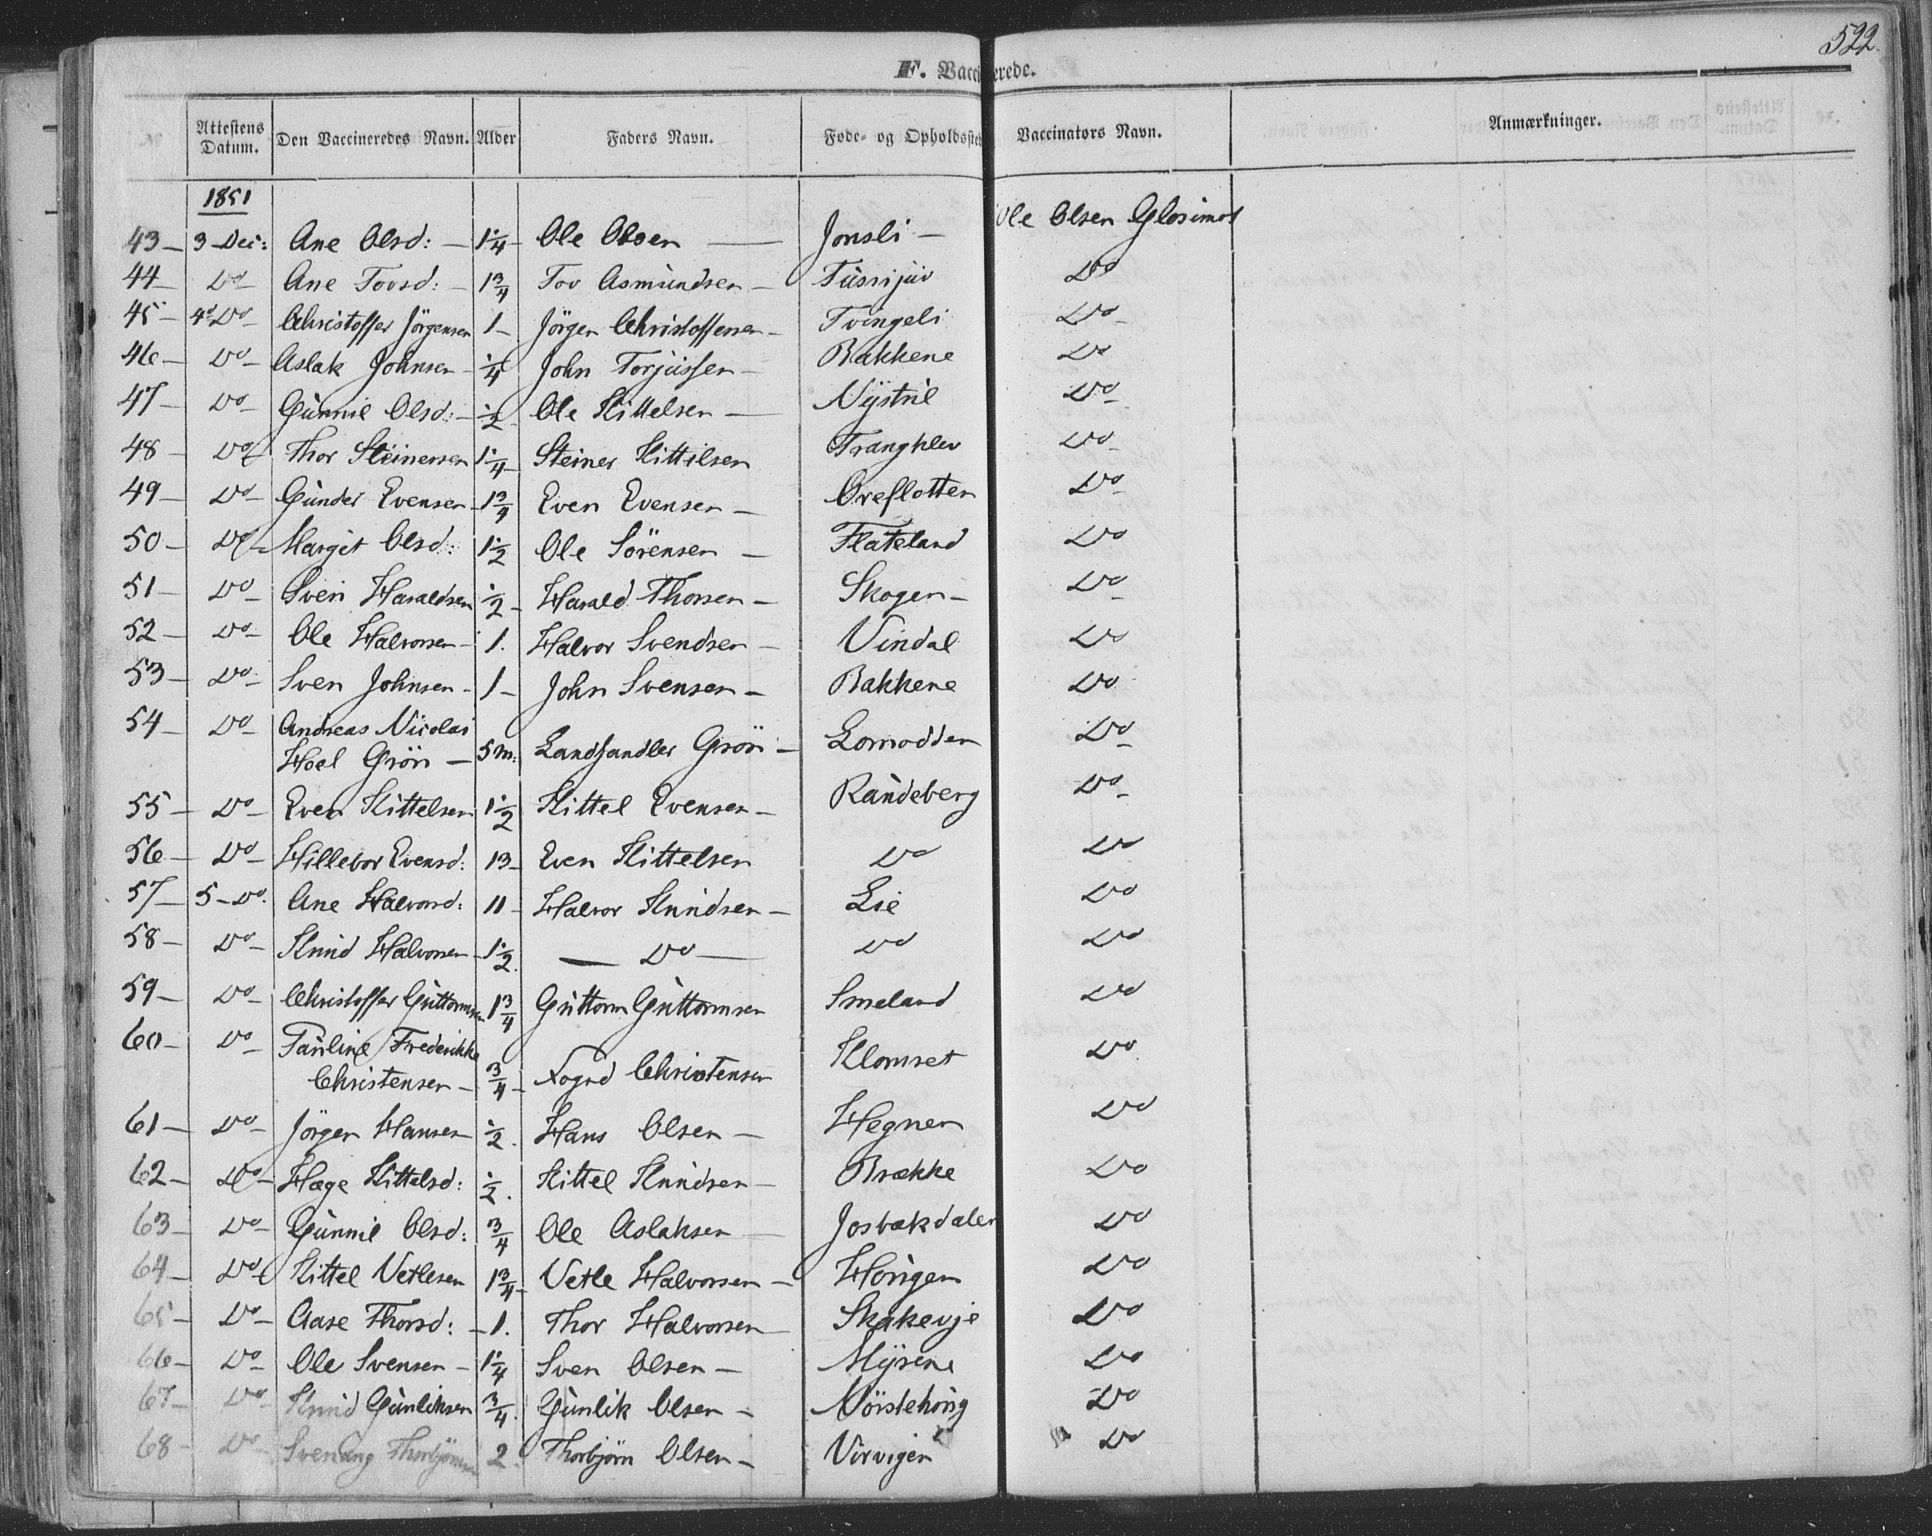 522.
F. Vaccinerede.
No Attestens Datum. Den Vaccineredes Navn. Alder Faders Navn. Føde- og Opholdssted Vaccinators Navn. Anmærkninger.
1851
43 – 3 – Dec: Ane Olsd: – 1 1/4 – Ole Olsen – Jonsli – Ole Olsen Glosimot
44 – Do – Ane Tovsd: – 1 3/4 Tov Asmundsen – Tussijuv Do
45 – 4de Do – Christoffer Jörgensen 1 – Jörgen Christoffersen – Tvingeli Do –
46 – Do – Aslak Johnsen – 1/4 John Torjussen – Bakkene Do
47 – Do – Gunnil Olsd: – 1/2 Ole Kittelsen – Nystul Do –
48 – Do – Thor Steinersen 1 1/4 – Steiner Kittilsen Trangklev Do –
49 – Do – Gunder Evensen 1 3/4 Even Evensen – Oreflotten Do –
50 – Do – Margit Olsd: 1 1/2 Ole Sörensen – Flateland Do
51 – Do – Sven Haraldsen 1/2 – Harald Thorsen – Skogen – Do –
52 – Do – Ole Halvorsen – 1. Halvor Svendsen – Vindal Do
53 – Do – Sven Johnsen – 1 – John Svensen – Bakkene Do
54 – Do – Andreas Nicolai
Hoel Grön – 5 m: Landhandler Grön – Lomodden Do –
55 – Do – Even Kittelsen 1 1/2 Kittel Evensen – Randeberg Do –
56 – Do – Hillebor Evensd: 13 – Even Kittelsen Do Do
57 – 5 – Do. Ane Halvorsd: 11 – Halvor Knudsen – Lie Do
58 – Do – Knud Halvorsen 1 1/2. – Do – Do Do
59 – Do – Christoffer Guttormsen 1 3/4 Guttorm Guttormsen Smeland Do
60 – Do – Pauline Frederikke
Christensen – 3/4 – Fogd Christensen Klomset Do
61 – Do – Jörgen Hansen 1/2. Hans Olsen – Hegnen Do
62 – Do – Hæge Kittelsd: 1/2. Kittel Knudsen – Brække Do
63 – Do – Gunnil Olsd: 3/4 Ole Aslaksen – Josbækdalen Do
64 – Do – Kittel Vetlesen 1 3/4 – Vetle Halvorsen – Haugen Do
65 – Do – Aase Thorsd: – 1. Thor Halvorsen Skakevje Do
66 – Do – Ole Svensen – 1 1/4 Sven Olsen – Myrene Do
67 – Do – Knud Gunliksen 3/4. Gunlik Olsen – Do
68 – Do – Svenung Thorbjörnsen 2. Thorbjörn Olsen – Virvigen Do